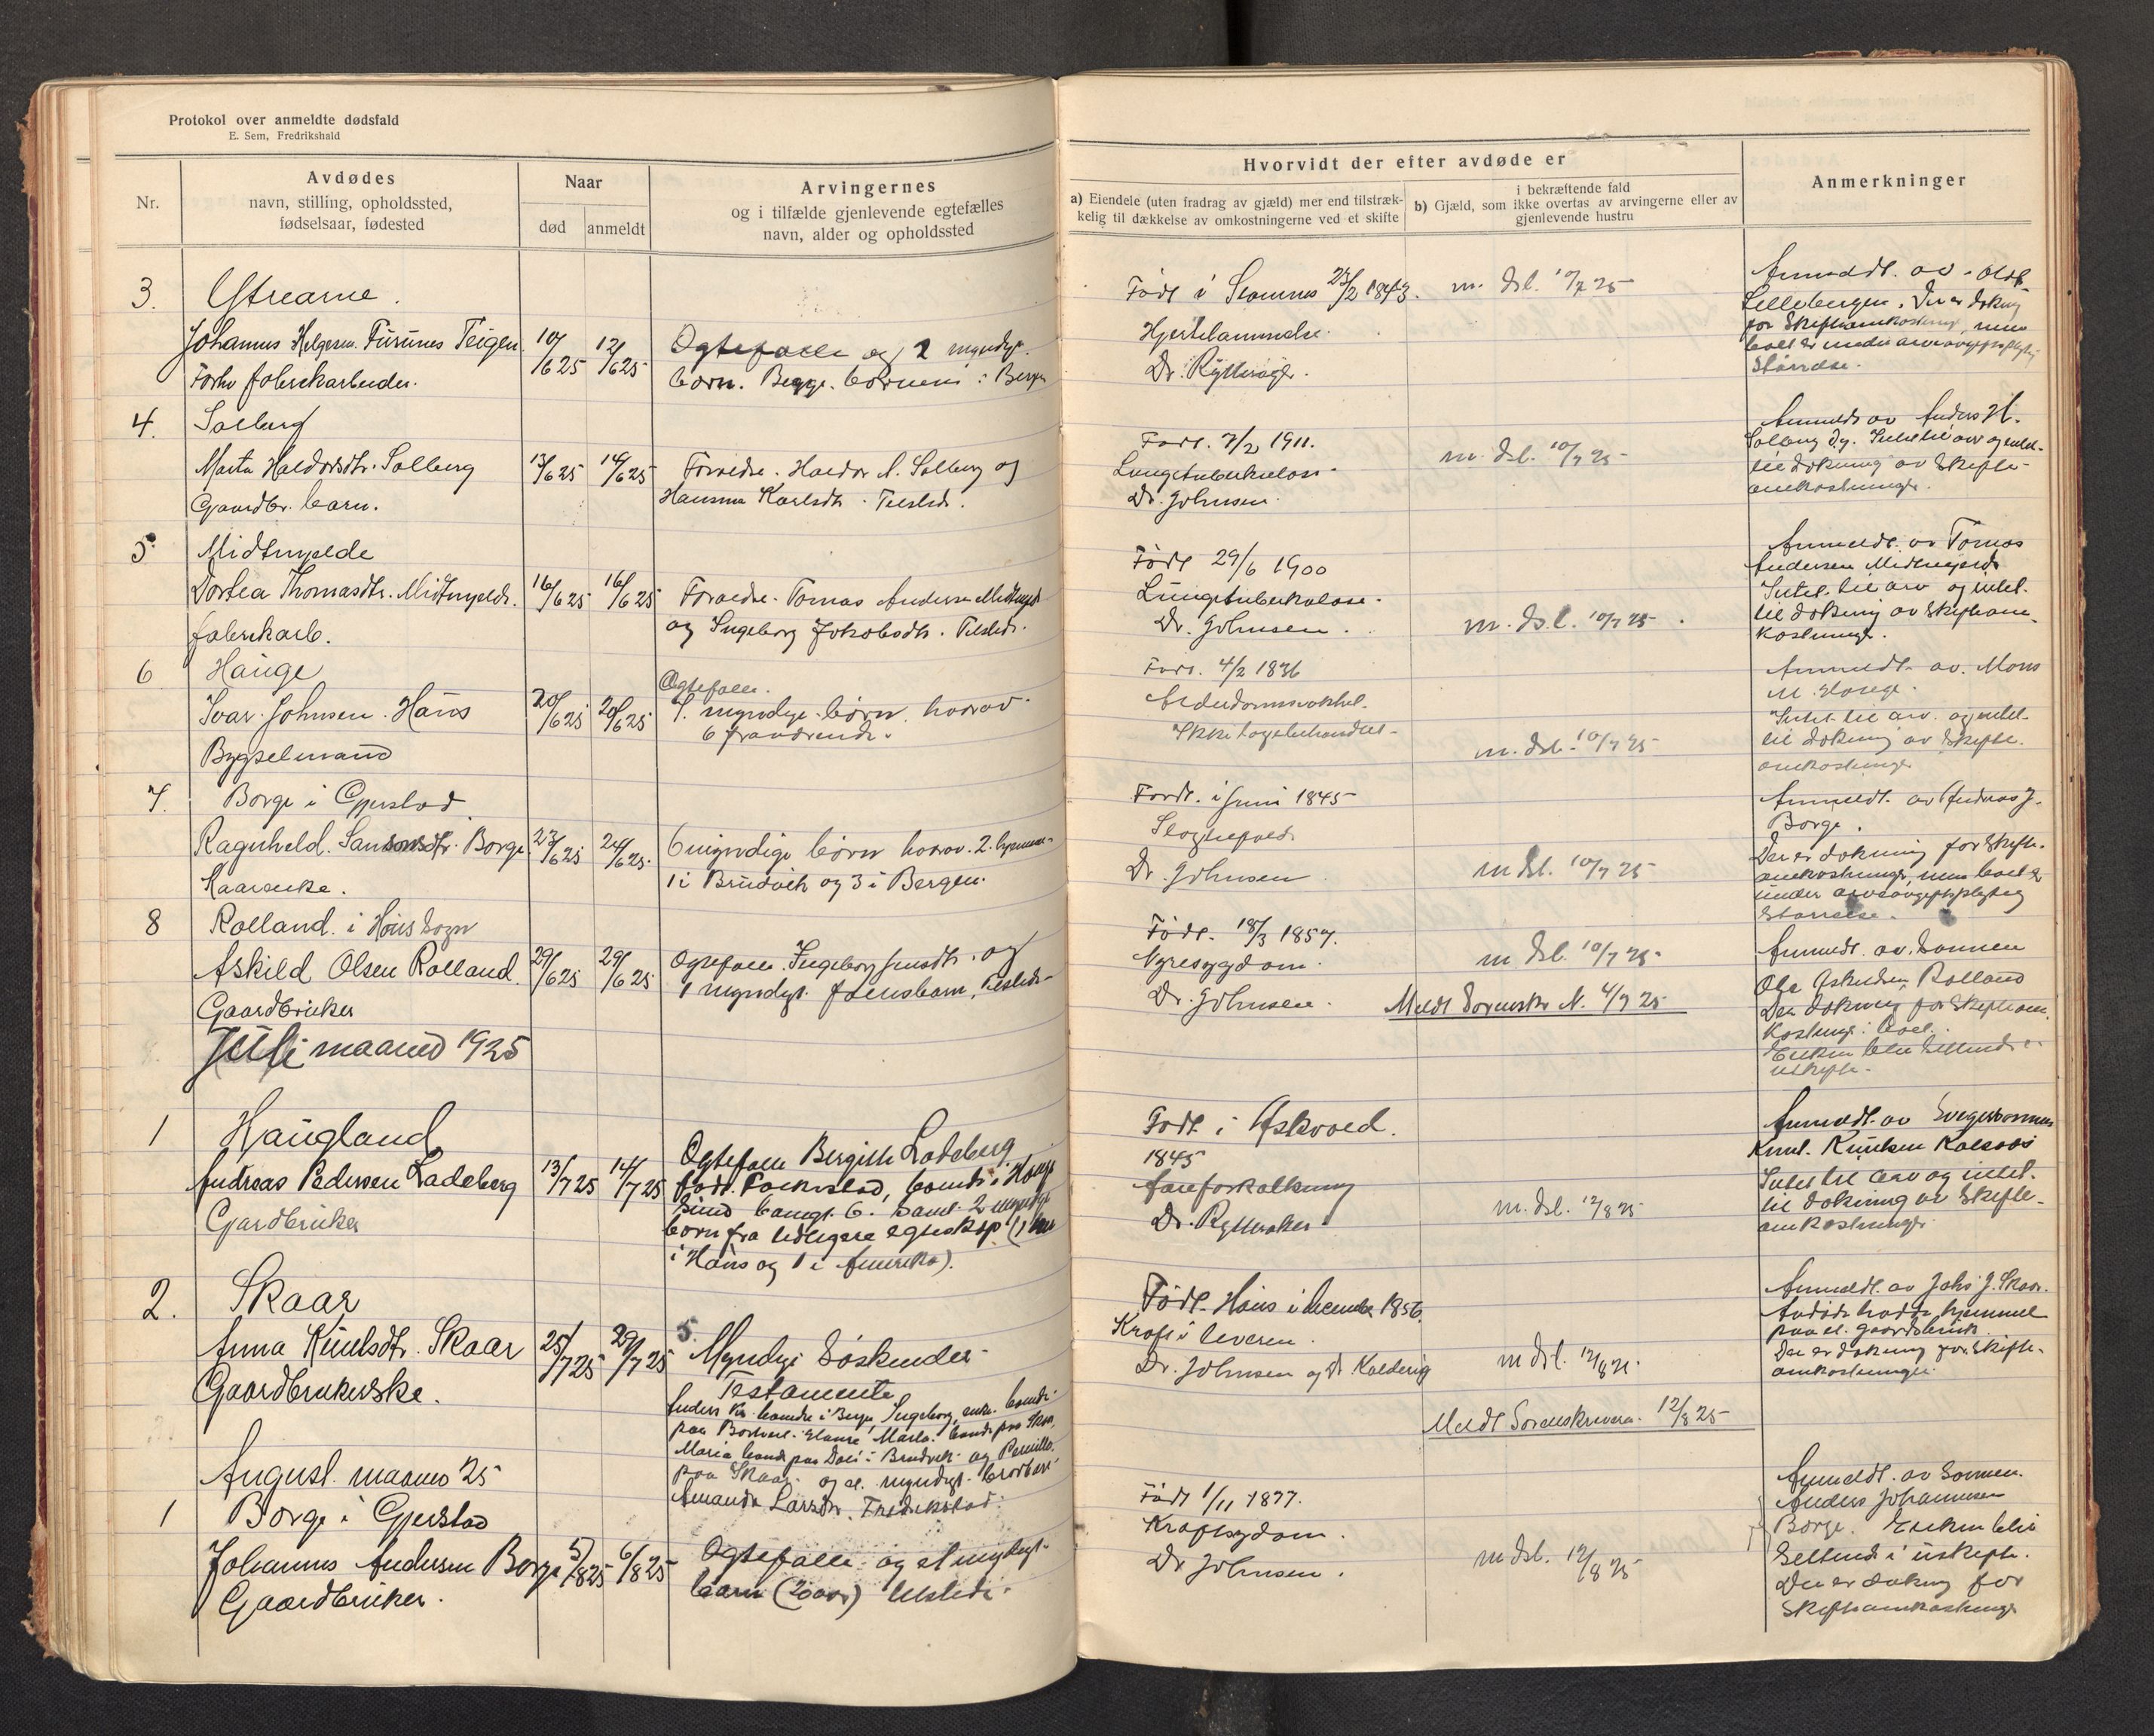 Protokol over anmeldte dødsfald
E. Sem, Fredrikshald
Nr.
Avdødes
navn, stilling, opholdssted,
fødselsaar, fødested
Naar
død
anmeldt
Arvingernes
og i tilfælde gjenlevende egtefælles
navn, alder og opholdssted
3.
Johannes Helgesen Furunes Teigen
10/6 25
12/6 25
Ogtefælle og 2 myndige
forhv fabrikarbeider.
børn. Begge børnene i Bergen
4.
Solberg
Marta Haldorsdtr. Solberg
13/6 25
14/6 25
Foreldre. Haldor A. Solberg og
Gaardbr. barn.
Hansina Karlsdtr. Tilsteds.
5.
Midtmjelde
Dortea Thomasdtr. Midtmjelde.
16/6 25
16/6 25
Foreldre. Tomas Andersen Midtmjeld
fabrikarb.
og Ingeborg Jakobsdtr. Tilsteds.
6
Hauge
Ogtefælle.
Ivar Johnsen Haus
20/6 25
20/6 25
7. myndige børn hvorav
6 fraværende.
Bygselmand
7.
Borge i Gjerstad
Ragnhild Samsonsdtr. Borge
23/6 25
24/6 25.
6 myndige børn hvorav 2 hjemme
Kaarenke.
1 i Bruvik og 3 i Bergen.
8
Rolland i Haus Sogn
Askild Olsen Rolland.
29/6 25
29/6 25
Ogtefælle Ingeborg Jensdtr. og
1 myndigt fællesbarn, tilsteds
Gaardbruker
Juli maaned 1925
1
Haugland
Andreas Pedersen Ladeberg
13/7 25
14/7 25
Ogtefælle Bergitte Ladeberg
Gardbruker
børn fra tidligere egteskap (1 her
i Haus og 1 i Amerika).
2.
Skaar
Anna Knutsdtr. Skaar
25/7 25
29/7 25
5.
Myndige Søskender
Gaardbrukerske.
Testamente
Maria boende paa Dale i Bruvik og Pernille
paa Skaar og et myndigt brorbarn
Amanda Larsdtr. Fredrikstad.
August maaned 25
1
Borge i Gjerstad
Johannes Andersen Borge
5/8 25
6/8 25
Ogtefælle og et myndigt
Gaardbruker.
barn (20 aar) tilsteds.
Hvorvidt der efter avdøde er
a) Eiendele (uten fradrag av gjæld) mer end tilstræk-
kelig til dækkelse av omkostningerne ved et skifte
i bekræftende fald
b) Gjæld, som ikke overtas av arvingerne eller av
gjenlevende hustru
Anmerkninger
Født i Stamnes 23/2 1843.
m. dsl. 10/7 25
Hjertelammelse.
Dr. Rytterager.
Født. 7/2 1911.
Lungetuberkulose
Dr. Johnsen.
m. dsl. 10/7 25
Anmeldt av Anders H.
Solberg d.y. Intet til arv og intet
til dækning av Skifte-
omkostninger.
Født 29/6 1900
Lungetuberkulose.
Dr. Johnsen.
m. dsl. 10/7 25
Anmeldt av Tomas
Andersen Midtmjelde
Intet til arv og intet
til dækning av Skifteom-
kostninger.
Født. 4/2 1836
Alderdomssvakhet.
Ikke lægebehandlet
m. dsl. 10/7 25
Anmeldt av Mons
M. Hauge.
Intet til arv og intet
til dækning av Skifte-
omkostninger
Født i Juni 1845
Slagtilfælde
Dr. Johnsen
m dsl. 10/7 25
Anmeldt av Andreas J.
Borge.
Der er dækning for Skifte-
omkostninger, men boet er
under arveavgiftspligtig
Størrelse.
Født. 18/3 1857.
Nyresygdom.
Dr. Johnsen.
m dsl. 10/7 25
Meldt Sorenskr N. 4/7 25
Anmeldt av Sønnen
Ole Askildsen Rolland
Der dækning for Skifteom-
kostninger i boet.
Enken blir sittende i
uskifte.
Født i Askvoll.
1845
Aareforkalkning
Dr. Rytteraker
m. dsl. 12/8 25
Anmeldt av Svigersønnen
Knut Knutsen
Intet til arv og intet
til dækning av Skifte-
omkostninger.
Født Haus i December 1856.
Kræft i leveren.
Dr. Johnsen og dr.
m dsl. 12/8 25.
Meldt Sorenskriveren. 12/8 25
Anmeldt av Johs J. Skaar.
Avdøde hadde hjemmel
paa et gaardsbruk.
Der er dækning for Skifte-
omkostninger.
Født 1/11 1877.
Kræftsygdom.
Dr Johnsen.
m dsl. 12/8 25
Anmeldt av Sønnen
Anders Johannesen
Borge. Enken blir
sittende i uskifte.
Der er dækning for
Skifteomkostninger